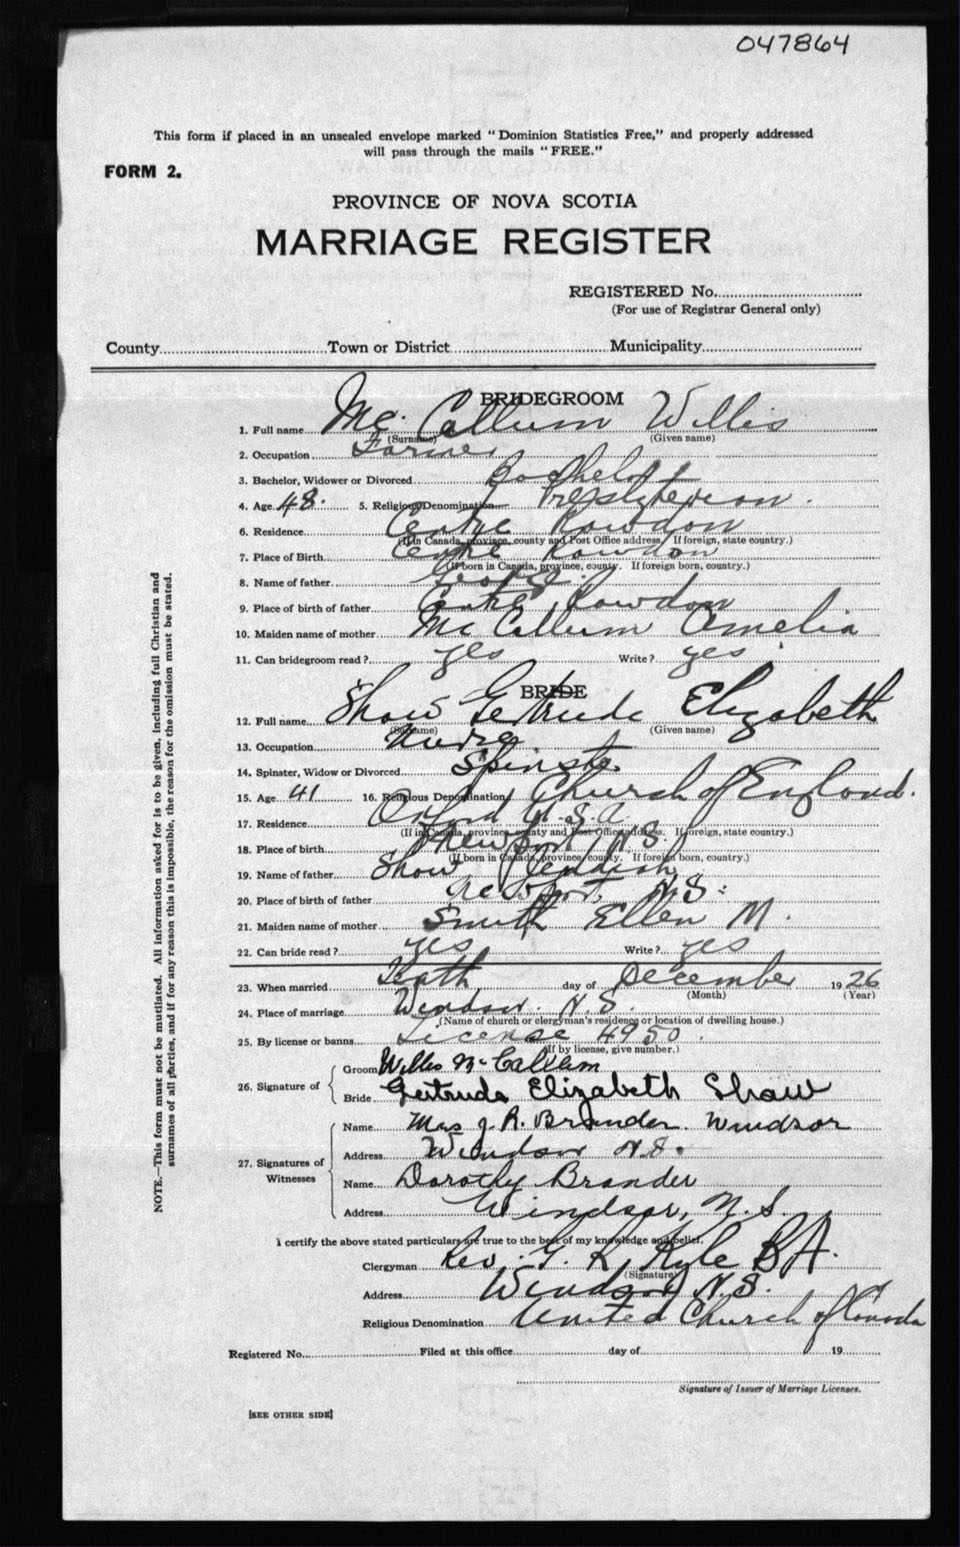 047864
This form if placed in an unsealed envelope marked "Dominion Statistics Free," and properly addressed
will pass through the mails "FREE."
FORM 2.
PROVINCE OF NOVA SCOTIA
MARRIAGE REGISTER
REGISTERED No.
(For use of Registrar General only)
County Town or District Municipality
BRIDEGROOM
1. Full name Mc Callum Willis
(Surname) (Given name)
2. Occupation Farmer
3. Bachelor, Widower or Divorced Bachelor
4. Age 48. 5. Religious Denomination Presbyterian.
6. Residence Centre Rawdon
(If in Canada, province, county and Post Office address. If foreign, state country.)
7. Place of Birth Centre Rawdon
(If born in Canada, province, county. If foreign born, country.)
8. Name of father George.
9. Place of birth of father Centre Rawdon
10. Maiden name of mother Mc Callum Amelia
11. Can bridegroom read? yes Write? yes
BRIDE
12. Full name Shaw Gertrude Elizabeth
(Surname) (Given name)
13. Occupation Nurse
14. Spinster, Widow or Divorced Spinster
15. Age 41 16. Religious Denomination Church of England.
17. Residence Oxford U.S.A
(If in Canada, province, county and Post Office address. If foreign, state country.)
18. Place of birth Newport N.S.
(If born in Canada, province, county. If foreign born, country.)
19. Name of father Shaw
20. Place of birth of father Newport, N.S.
21. Maiden name of mother Smith Ellen M.
22. Can bride read? yes Write? yes
23. When married day of December 1926
(Month) (Year)
24. Place of marriage Windsor N.S.
(Name of church or clergyman's residence or location of dwelling house.)
25. By license or banns License 4950.
(If by license, give number.)
26. Signature of
Groom Willis McCallum
Bride Gertrude Elizabeth Shaw
27. Signatures of Witnesses
Name Mrs J. R. Brander. Windsor
Address Windsor N.S.
Name Dorothy Brander
Address Windsor, N.S.
I certify the above stated particulars are true to the best of my knowledge and belief.
Clergyman Rev. G. R. Kyle BA.
(Signature)
Address Windsor N.S.
Religious Denomination United Church of Canada
Registered No. Filed at this office day of 19
Signature of Issuer of Marriage Licenses.
[SEE OTHER SIDE]
NOTE.—This form must not be mutilated. All information asked for is to be given, including full Christian and
surnames of all parties, and if for any reason this is impossible, the reason for the omission must be stated.